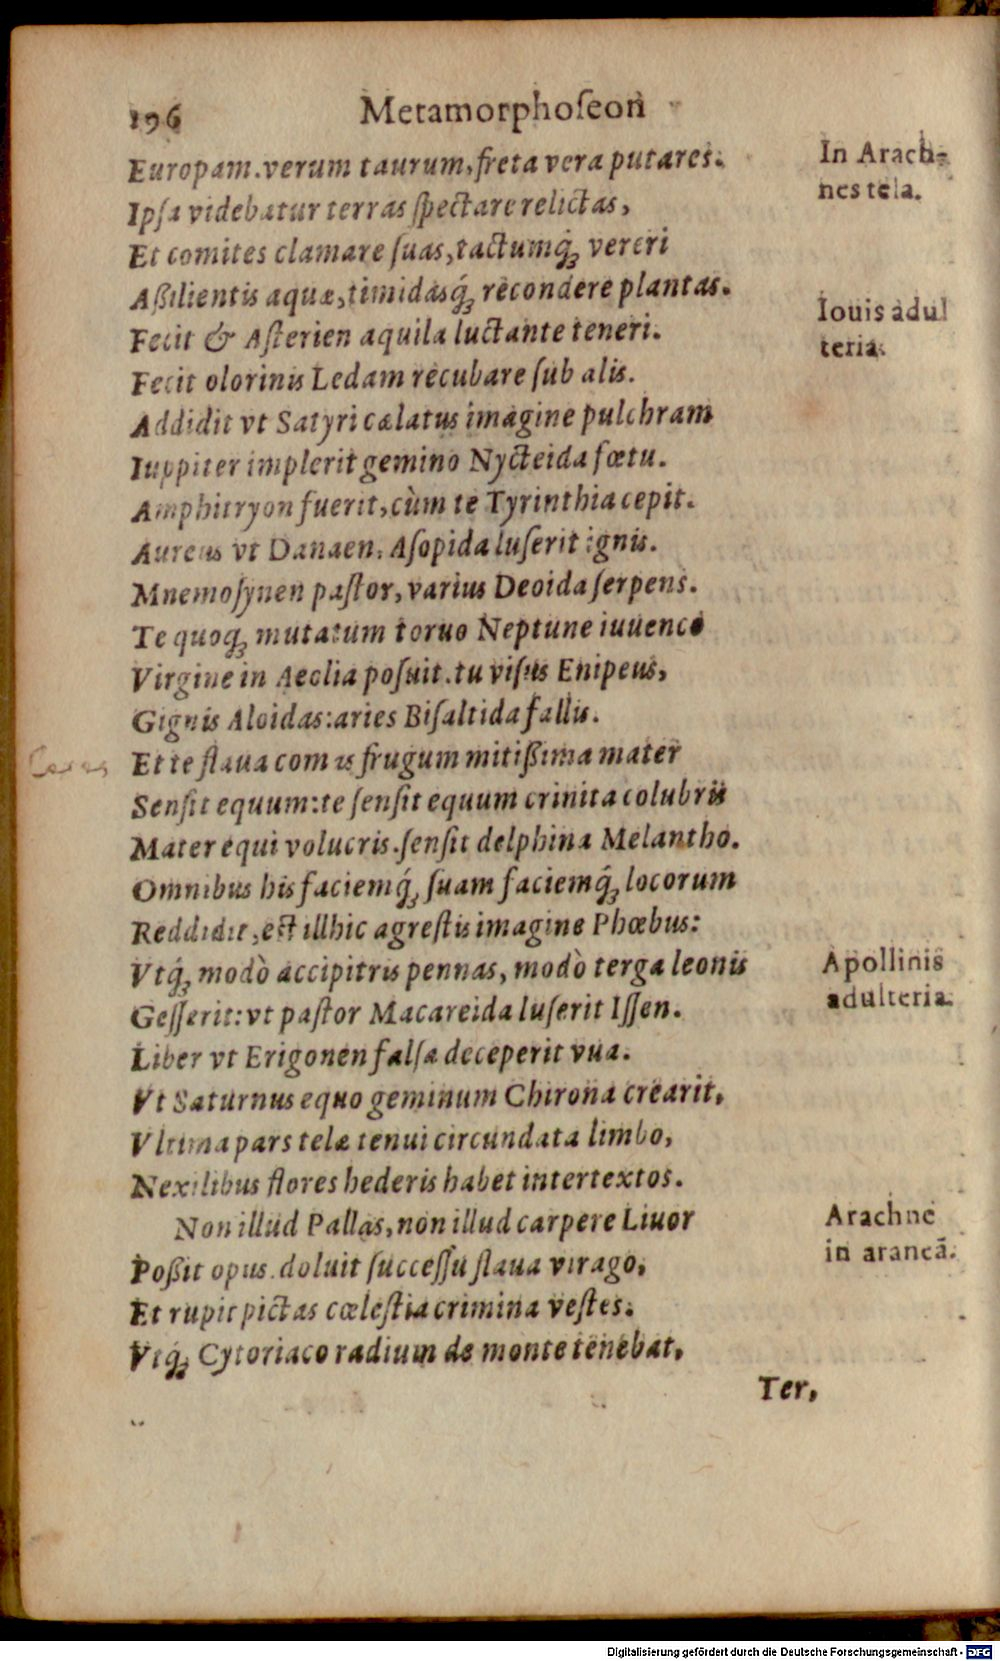 196 Metamorphoſeon
Europam. verum taurum, freta vera putares.
In Arach-
nes tela.
Ipſa videbatur terras ſpectare relictas,
Et comites clamare ſuas, tactumq́ꝫ vereri
Aßilientis aquæ, timidasq́ꝫ recondere plantas.
Iouis adul
teria.
Fecit & Aſterien aquila luctante teneri.
Fecit olorinis Ledam recubare ſub alis.
Addidit vt Satyri cælatus imagine pulchram
Iuppiter implerit gemino Nycteida fœtu.
Amphitryon fuerit, cùm te Tyrinthia cepit.
Aureus vt Danaen, Aſopida luſerit ignis.
Mnemoſynen paſtor, varius Deoida ſerpens.
Te quoqꝫ mutatum toruo Neptune iuuenco
Virgine in Aeolia poſuit. tu viſus Enipeus,
Gignis Aloidas: aries Biſaltida fallis.
Ceres
Et te flaua comis frugum mitißima mater
Senſit equum: te ſenſit equum crinita colubris
Mater equi volucris. ſenſit delphina Melantho.
Omnibus his faciemq́ꝫ ſuam faciemq́ꝫ locorum
Reddidit, est illhic agreſtis imagine Phœbus:
Vtq́ꝫ modò accipitris pennas, modò terga leonis
Apollinis
adulteria.
Geſſerit: vt paſtor Macareida luſerit Iſſen.
Liber vt Erigonen falſa deceperit vua.
Vt Saturnus equo geminum Chirona crearit,
Vltima pars telæ tenui circundata limbo,
Nexilibus flores hederis habet intertextos.
Non illud Pallas, non illud carpere Liuor
Arachne
in araneā.
Poßit opus. doluit ſucceſſu flaua virago,
Et rupit pictas cœleſtia crimina veſtes.
Vtq́ꝫ Cytoriaco radium de monte tenebat,
Ter,
Digitalisierung gefördert durch die Deutsche Forschungsgemeinschaft - DFG